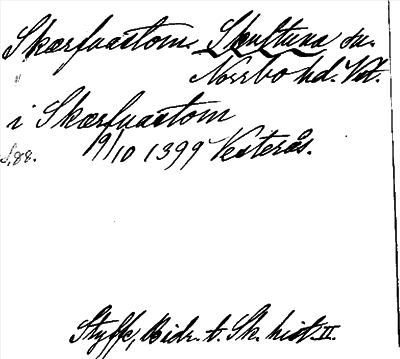 Skærfvastom. Skultuna sn.
Norrbo hd. Vst.
i Skærfvastom
S. 88. 19/10 1399 Vesterås.
Styffe, Bidr. t. Sk. hist. II.